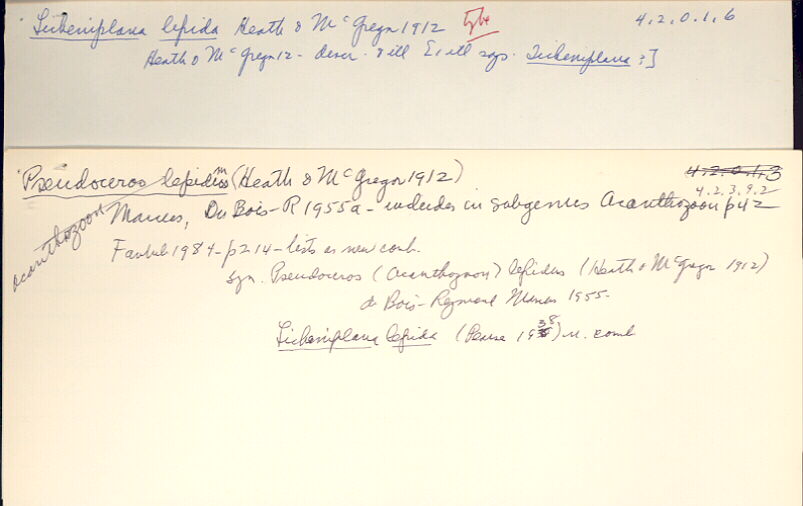 Licheniplana lepida Heath & McGregor 1912 type 4.2.0.1.6
Heath & McGregor 12 - descr. & ill says Licheniplana ;]
Pseudoceros lepidum (Heath & McGregor 1912) 4.2.0.1.3
Acanthozoon 4.2.3.9.2
Marcus, Du Bois-R 1955a - includes in subgenus Acanthozoon p42
Faubel 1984 - p214 - lists as new comb.
syn. Pseudoceros (Acanthozoon) lepidus (Heath & McGregor 1912)
du Bois-Reymond Marcus 1955.
Licheniplana lepida (Pearse 1938) n. comb